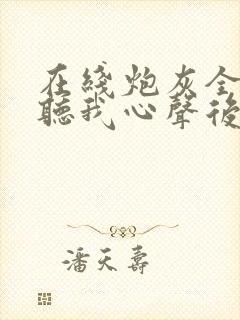 在綫炮灰全
聽我心聲後
潘天壽